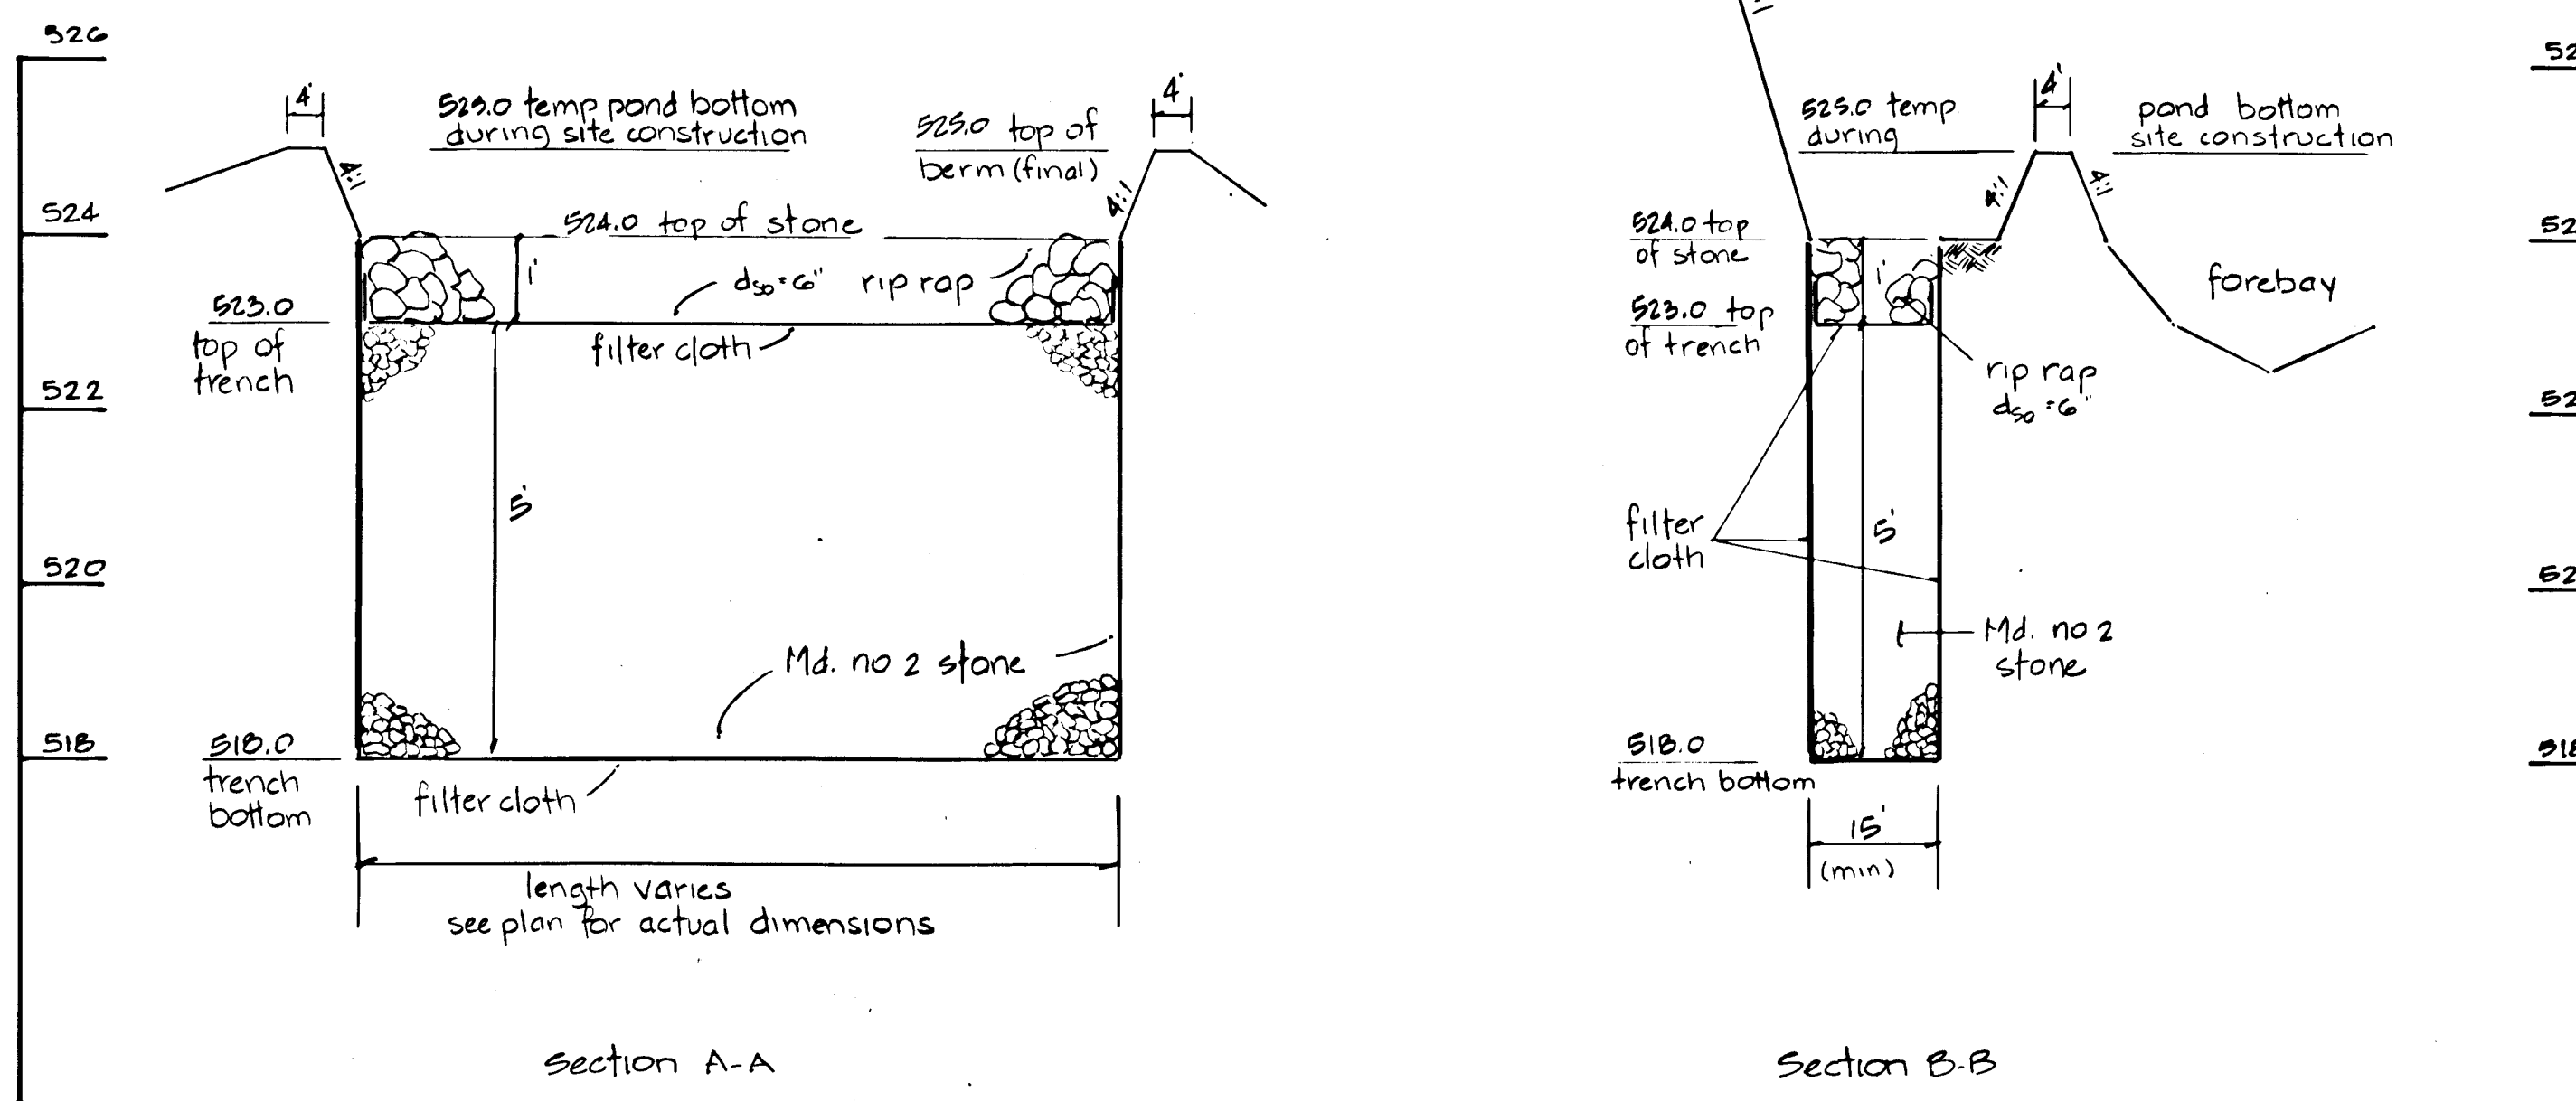 526
524
522
520
518
4'
525.0 temp pond bottom
during site construction
525.0 top of
berm (final)
4'
4:1
4:1
524.0 top of stone
1'
d50 = 6" rip rap
523.0
top of
trench
filter cloth
5'
Md. no 2 stone
518.0
trench
bottom
filter cloth
length varies
see plan for actual dimensions
Section A-A
4'
525.0 temp
during
pond bottom
site construction
4:1
4:1
524.0 top
of stone
1'
523.0 top
of trench
forebay
rip rap
d50 = 6"
filter
cloth
5'
Md. no 2
stone
518.0
trench bottom
15'
(min)
Section B-B
52
52
52
52
518